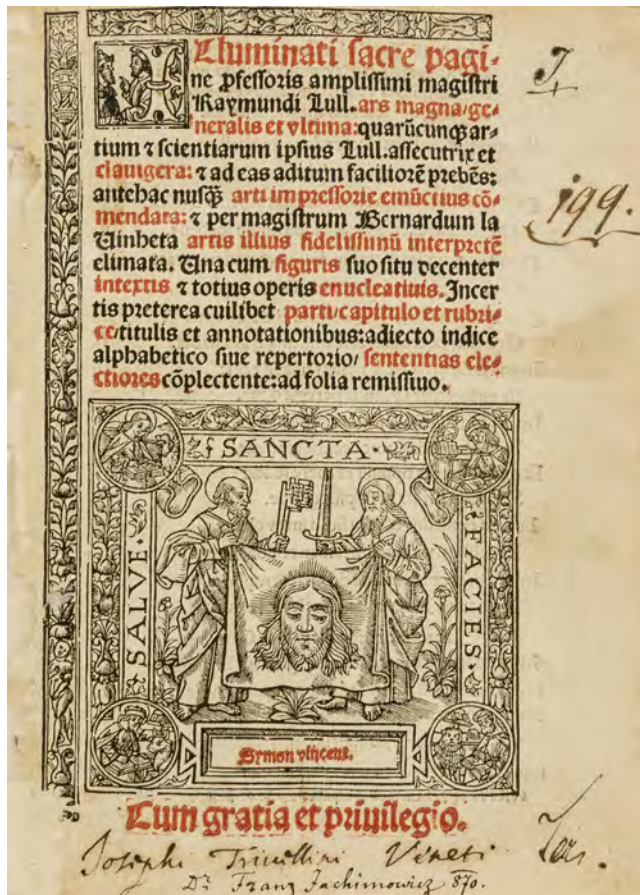 Illuminati sacre pagi-
ne ꝓfessoris amplissimi magistri
Raymundi Lull. ars magna/ge-
neralis et vltima: quarūcunqꝫ ar-
tium ⁊ scientiarum ipsius Lull. assecutrix et
clauigera: ⁊ ad eas aditum faciliorē prebēs:
antehac nusqꝫ̄ arti impressorie emūctius cō-
mendata: ⁊ per magistrum Bernardum la
Uinheta artis illius fidelissimū interpretē
elimata. Una cum figuris suo situ decenter
intextis ⁊ totius operis enucleatiuis. Incer
tis preterea cuilibet parti/capitulo et rubri-
ce/titulis et annotationibus: adiecto indice
alphabetico siue repertorio/ sententias ele-
ctiores cōplectente: ad folia remissiuo.
I
199.
SANCTA
SALVE
FACIES
Symon vincent.
Cum gratia et priuilegio.
Josephi Triuellini Veneti
Dr Franz Jachimowicz 870.